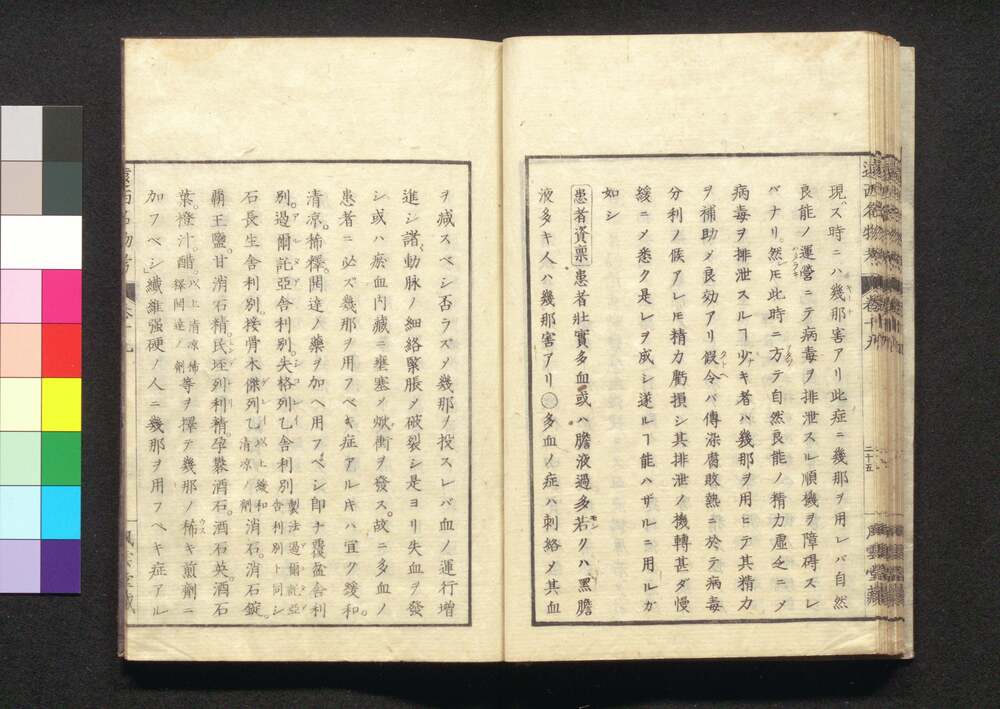 現ハス時ニハ幾那害アリ此症ニ幾那ヲ用レバ自然
良能ノ運営ニテ病毒ヲ排泄スル順機ヲ障碍スレ
バナリ然レ𪜈此時ニ方テ自然良能ノ精力虚乏ニメ
病毒ヲ排泄スルヿ少キ者ハ幾那ヲ用ヒテ其精力
ヲ補助メ良効アリ假令バ傳染腐敗熱ニ於テ病毒
分利ノ候アレ𪜈精力虧損シ其排泄ノ機轉甚ダ慢
緩ニメ悉ク是レヲ成シ遂ルヿ能ハザルニ用ルガ
如シ
患者資稟 患者壯實多血或ハ膽液過多若クハ黒膽
液多キ人ハ幾那害アリ○多血ノ症ハ刺絡メ其血
巻十九
二十五
風雲堂藏
ヲ减スベシ否ラズメ幾那ヲ投スレバ血ノ運行増
進シ諸動脉ノ細絡緊脹メ破裂シ是ヨリ失血ヲ發
シ或ハ瘀血内臓ニ壅塞メ焮衝ヲ發ス故ニ多血ノ
患者ニ必ズ幾那ヲ用フベキ症アルキハ宜ク緩和
清凉稀釋開達ノ藥ヲ加ヘ用フベシ印ナ覆盆舎利
別過爾託亞舎利別失格列乙舎利別 製法過爾託亞舎利別ト同シ
石長生舎利別接骨木傑列乙 以上緩和清凉ノ劑 消石消石錠
覇王鹽甘消石精民垤列利精孕礬酒石酒石英酒石
葉橙汁醋 以上清凉稀釋開達ノ劑 等ヲ擇テ幾那ノ稀キ煎劑ニ
加フベシ」纖維强硬ノ人ニ幾那ヲ用フベキ症アル